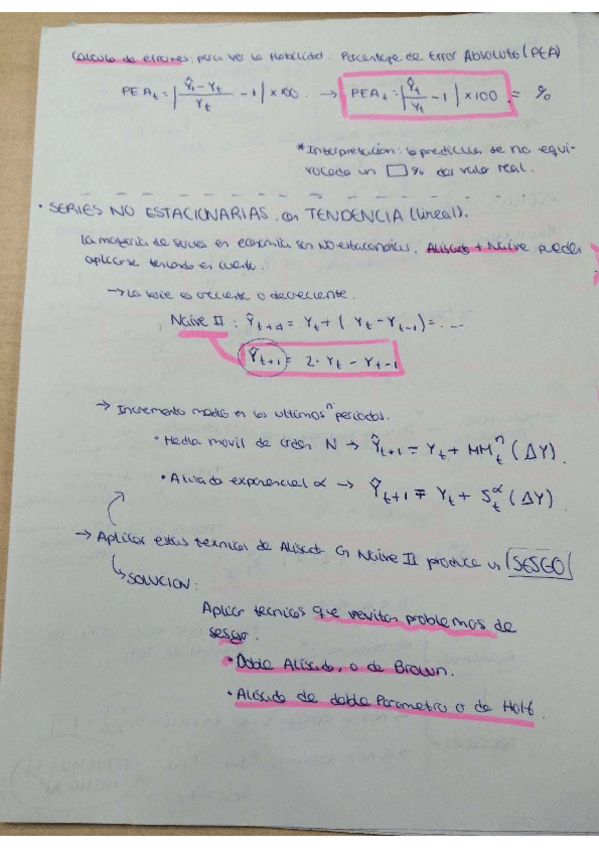 Calculo de errores: para ver la fiabilidad. Porcentaje de Error Absoluto (PEA)
PEAt = |Ŷt - Yt / Yt - 1| x 100. → PEAt = |Ŷt / Yt - 1| x 100 = %
* Interpretación: la predicción se ha equi-
vocado un □ % del valor real.
• SERIES NO ESTACIONARIAS con TENDENCIA (lineal).
La mayoría de series en economía son NO estacionarias. Alisado + Naive pueden
aplicarse teniendo en cuenta.
→ La serie es creciente o decreciente.
Naive II : Ŷt+1 = Yt + ( Yt - Yt-1) = ...
Ŷt+1 = 2. Yt - Yt-1
→ Incremento medio en los ultimos n periodos.
• Media movil de orden N → Ŷt+1 = Yt + MM t n (ΔY).
• Alisado exponencial α → Ŷt+1 = Yt + St α (ΔY)
→ Aplicar estas tecnicas de Alisado con Naive II produce un SESGO
↳ SOLUCION:
Aplicar tecnicas que evitan problemas de
sesgo:
• Doble Alisado, o de Brown.
• Alisado de doble Parametro o de Holt.